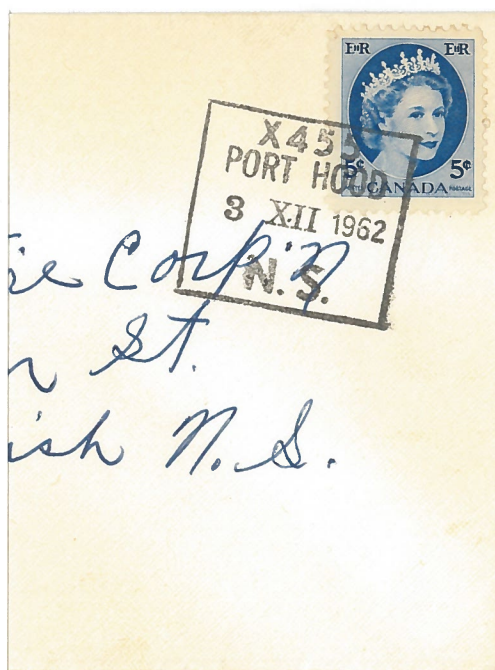 EIIR EIIR
5¢ 5¢
POSTES CANADA POSTAGE
X455
PORT HOOD
3 XII 1962
N. S.
ire Corp'n
St.
ish N. S.